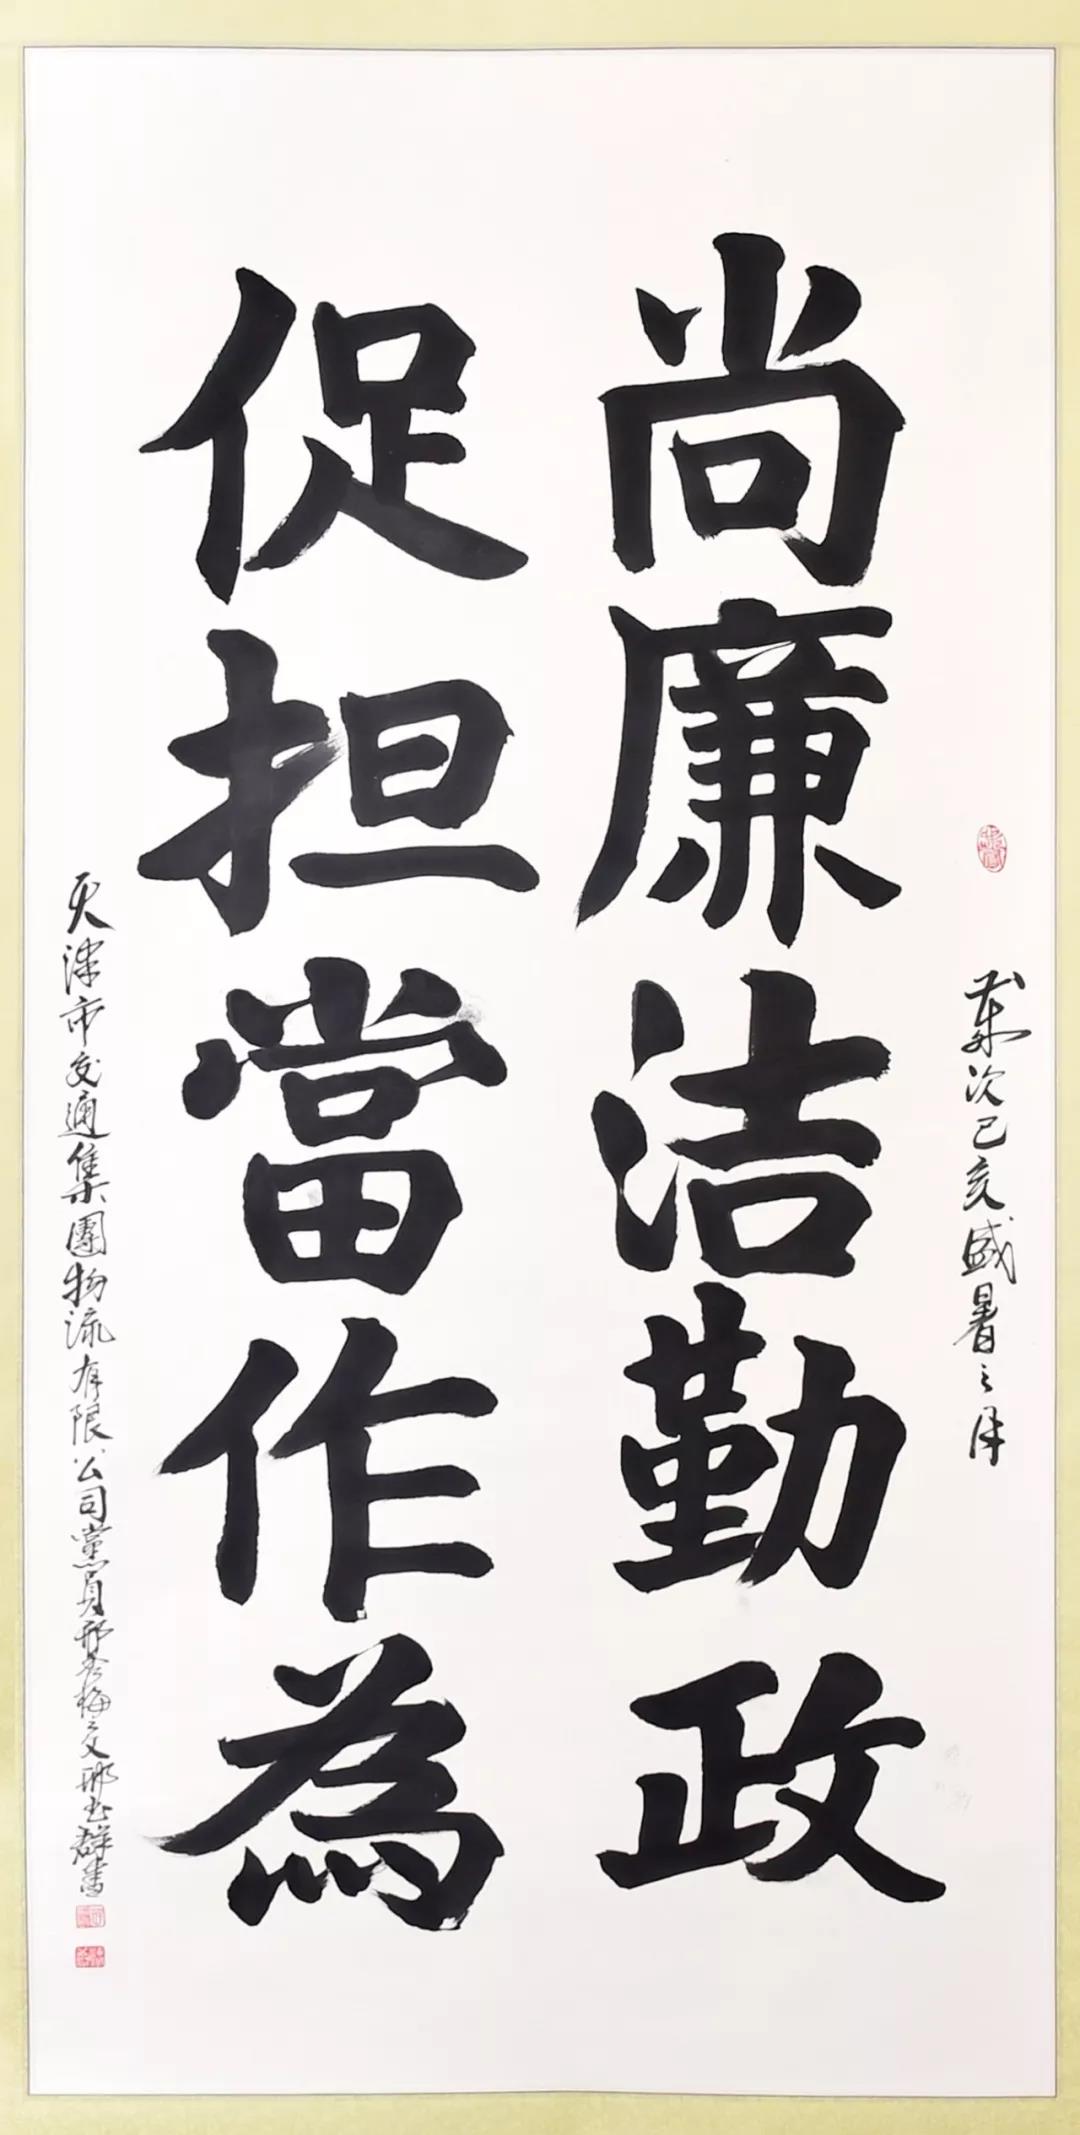 岁次己亥盛暑之月
尚廉洁勤政
促担當作為
天津市交通集團物流有限公司黨員邢冬梅之父邢书群書